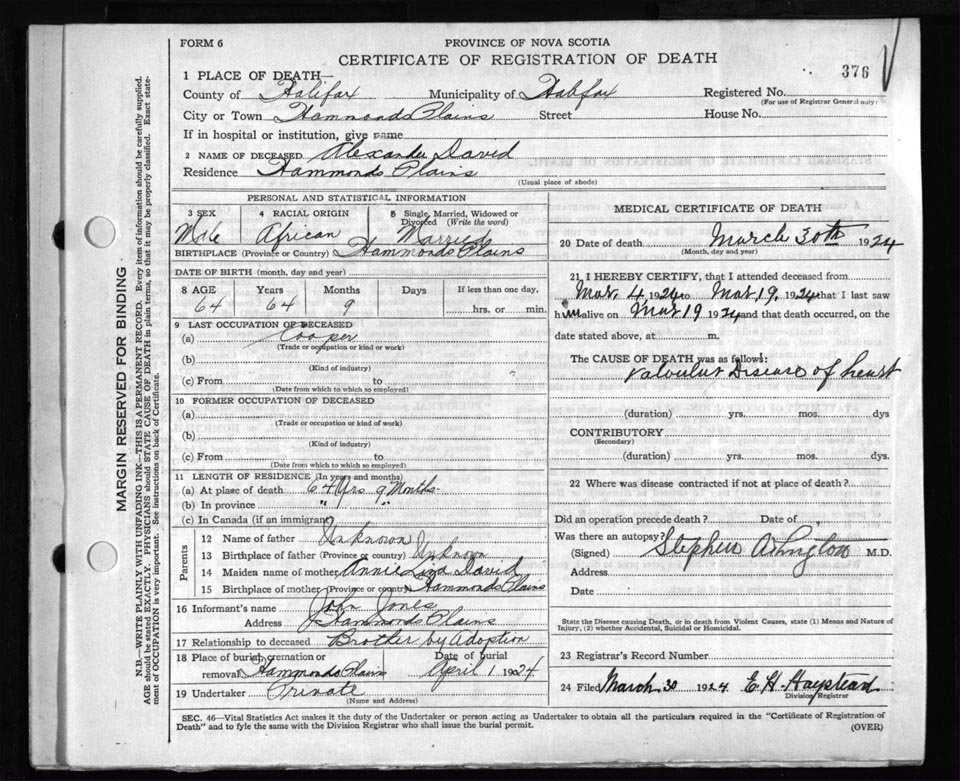 FORM 6
PROVINCE OF NOVA SCOTIA
CERTIFICATE OF REGISTRATION OF DEATH
376
1 PLACE OF DEATH—
County of Halifax Municipality of Halifax Registered No.
(For use of Registrar General only)
City or Town Hammonds Plains Street House No.
If in hospital or institution, give name
2 NAME OF DECEASED Alexander David
Residence Hammonds Plains
(Usual place of abode)
PERSONAL AND STATISTICAL INFORMATION
3 SEX 4 RACIAL ORIGIN 5 Single, Married, Widowed or
Divorced (Write the word)
Male African Married
BIRTHPLACE (Province or Country) Hammonds Plains
DATE OF BIRTH (month, day and year)
8 AGE Years Months Days If less than one day,
64 64 9 hrs. or min.
9 LAST OCCUPATION OF DECEASED
(a) Cooper
(Trade or occupation or kind or work)
(b)
(Kind of industry)
(c) From to
(Date from which to which so employed)
10 FORMER OCCUPATION OF DECEASED
(a)
(Trade or occupation or kind of work)
(b)
(Kind of industry)
(c) From to
(Date from which to which so employed)
11 LENGTH OF RESIDENCE (In years and months)
(a) At place of death 64 Yrs 9 Months
(b) In province " "
(c) In Canada (if an immigrant)
Parents
12 Name of father Unknown
13 Birthplace of father (Province or country) Unknown
14 Maiden name of mother Annie Liza David
15 Birthplace of mother (Province or country) Hammonds Plains
16 Informant's name John Jones
Address Hammonds Plains
17 Relationship to deceased Brother by Adoption
18 Place of burial, cremation or Date of burial
removal Hammonds Plains April 1 1924
19 Undertaker Private
(Name and Address)
MEDICAL CERTIFICATE OF DEATH
20 Date of death March 30th 1924
(Month, day and year)
21 I HEREBY CERTIFY, that I attended deceased from
Mar 4 1924 to Mar 19, 1924 that I last saw
him alive on Mar 19 1924 and that death occurred, on the
date stated above, at m.
The CAUSE OF DEATH was as follows:
Valvular Disease of heart
(duration) yrs. mos. dys
CONTRIBUTORY
(Secondary)
(duration) yrs. mos. dys.
22 Where was disease contracted if not at place of death?
Did an operation precede death? Date of
Was there an autopsy?
(Signed) Stephen M.D.
Address
Date
State the Disease causing Death, or in death from Violent Causes, state (1) Means and Nature of
Injury, (2) whether Accidental, Suicidal or Homicidal.
23 Registrar's Record Number
24 Filed March 30 1924 E. H. Haystead
Division Registrar
SEC. 46—Vital Statistics Act makes it the duty of the Undertaker or person acting as Undertaker to obtain all the particulars required in the "Certificate of Registration of
Death" and to fyle the same with the Division Registrar who shall issue the burial permit.
(OVER)
MARGIN RESERVED FOR BINDING
N.B.—WRITE PLAINLY WITH UNFADING INK—THIS IS A PERMANENT RECORD. Every item of information should be carefully supplied.
AGE should be stated EXACTLY. PHYSICIANS should STATE CAUSE OF DEATH in plain terms, so that it may be properly classified. Exact state-
ment of OCCUPATION is very important. See instructions on back of Certificate.